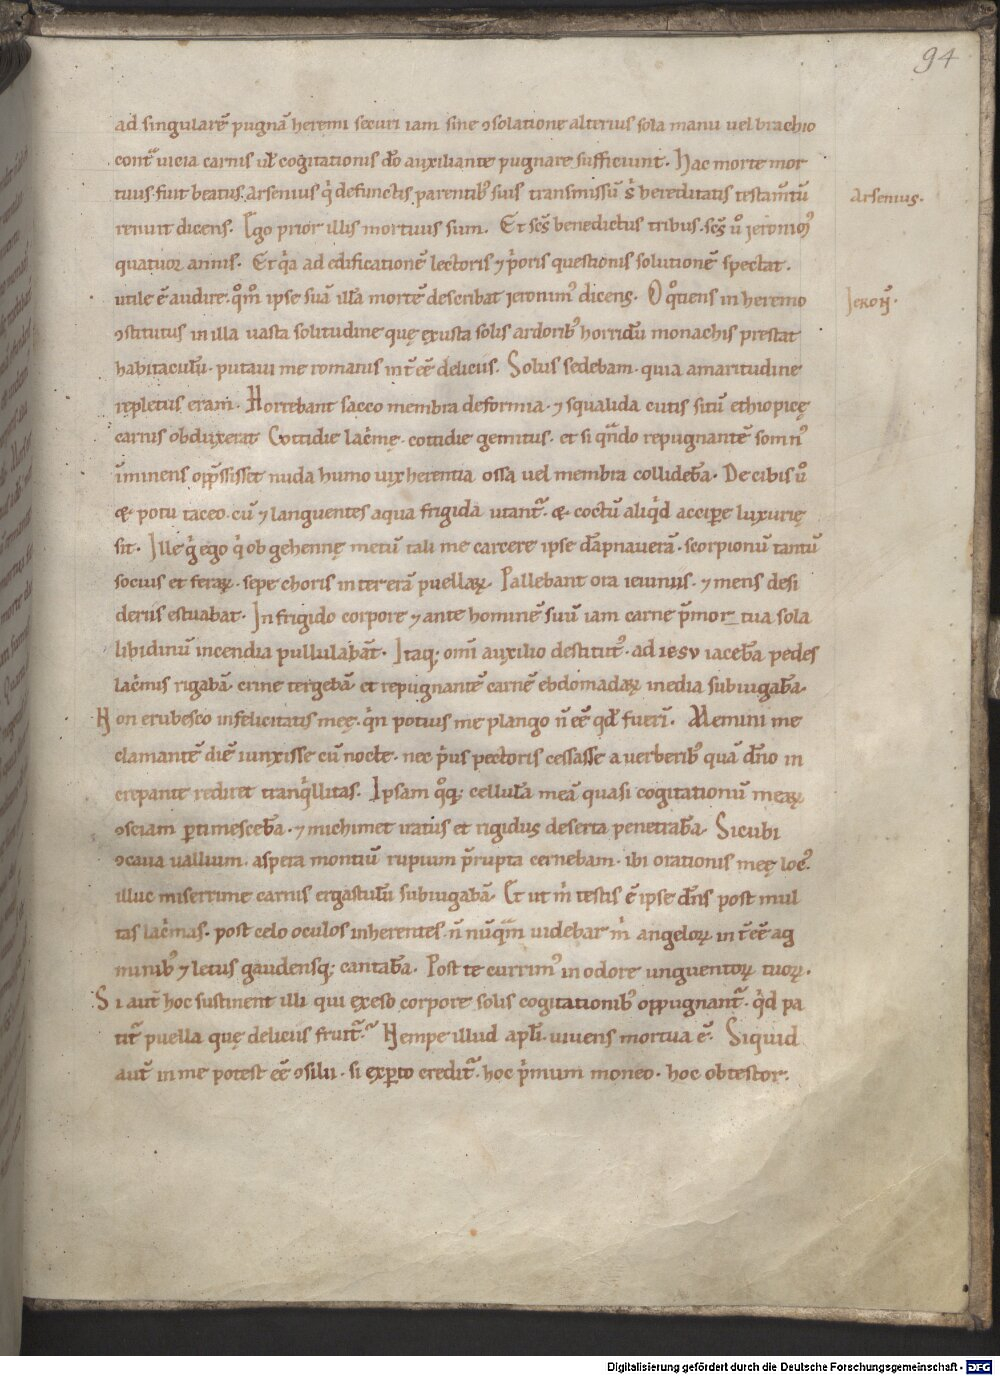 94
ad singularē pugnā heremi securi iam sine ꝯsolatione alterius sola manu uel brachio
cont̄ uicia carnis uł cogitationis do auxiliante pugnare sufficiunt. Hac morte mor
tuus fuit beatus arsenius q̇ defunctis parentib; suis transmissū ṡ hereditatis testam̄tū
Arsenius.
renuit dicens. Ego prior illis mortuus sum. Et scs̄ benedictus tribus. scs̄ ů ieronimꝰ
quatuor annis. Et q̇a ad edificationē lectoris ⁊ p̄oris questionis solutionē spectat.
utile ē audire. qͦm̄ ipse suā illā mortē describat ieronimꝰ dicens. O qͦtiens in heremo
Jeroń.
ꝯstitutus in illa uasta solitudine quę exusta solis ardorib; horridū monachis prestat
habitaculū. putaui me romanis int̄eē deliciis. Solus sedebam. quia amaritudine
repletus eram. Horrebant sacco membra deformia. ⁊ squalida cutis situ ethiopicę
carnis obduxerat Cottidie lac̄mę. cottidie gemitus. et si qn̄do repugnantē somnꝰ
īminens opp̄ssisset nuda humo uix herentia ossa uel membra collidebā. De cibis ů
& potu taceo. cū ⁊ languentes aqua frigida utantr̄. & coctū aliq̇d accipe luxurię
sit. Ille g̊ ego q̇ ob gehennę metū tali me carcere ipse dāpnauerā. scorpionū tantū
socius et feraꝝ. sepe choris intererā puellaꝝ. Pallebant ora ieiuniis. ⁊ mens desi
deriis estuabat. In frigido corpore ⁊ ante hominē suū iam carne p̄mor_tua sola
libidinū incendia pullulabāt. Itaq; omī auxilio destitutꝰ. ad iesv iacebā pedes
lac̄mis rigabā. crine tergebā et repugnantē carnē ebdomadaꝝ inedia subiugabā.
Non erubesco infelicitatis meę. q̇n potius me plango n̄ eē qd̄ fueri. Memini me
clamantē diē iunxisse cū nocte. nec p̄us pectoris cessasse a uerberib; quā dn̄o in
crepante rediret tranq̇llitas. Ipsam qͦq; cellulā meā quasi cogitationū meaꝝ
ꝯsciam ꝑtimescebā. ⁊ michimet iratus et rigidus deserta penetrabā. Sicubi
ꝯcaua uallium. aspera montiū rupium p̄rupta cernebam. ibi orationis meę locꝰ.
illuc miserrime carnis ergastulū subiugabā. Et ut m̄ testis ē ipse dn̄s post mul
tas lac̄mas. post celo oculos inherentes. n̄ nūqm̄ uidebar m̄ angeloꝝ int̄eē ag
minib; ⁊ letus gaudensq; cantabā. Post te currimꝰ in odore unguentoꝝ tuoꝝ.
Si aut̄ hoc sustinent illi qui exeso corpore solis cogitationib; oppugnantr̄. q̇d pa
titr̄ puella quę deliciis fruitr̄. Nempe illud apłi. uiuens mortua ē. Siquid
aut̄ in me potest eē ꝯsilii. si exꝑto creditr̄. hoc p̄mum moneo. hoc obtestor.
Digitalisierung gefördert durch die Deutsche Forschungsgemeinschaft - DFG